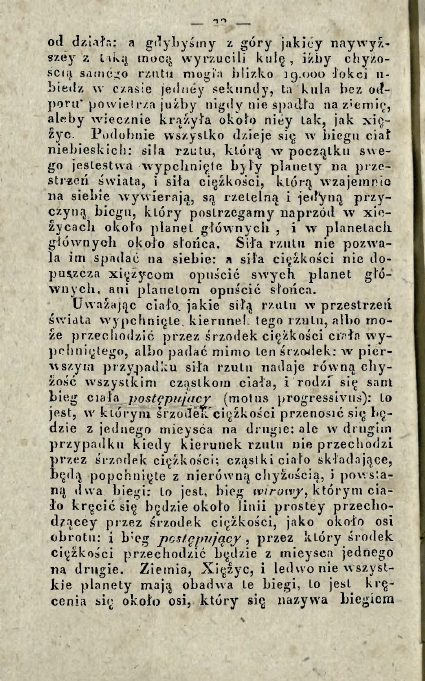 od działa: a gdybyśmy z góry jakiéy naywyż-
széy z taką mocą wyrzucili kulę, iżby chyżo-
ścią samégo rzutu mogła blizko 19.000 łokci u-
biedz w czasie jednéy sekundy, ta kula bez od-
poru powietrza jużby nigdy nie spadła na ziemię,
aleby wiecznie krążyła około niéy tak, jak xię-
życ. Podobnie wszystko dzieje się w biegu ciał
niebieskich: siła rzutu, którą w początku swe-
go jestestwa wypchnięte były planety na prze-
strzeń świata, i siła ciężkości, którą wzajemnie
na siebie wywierają, są rzetelną i jedyną przy-
czyną biegu, który postrzegamy naprzód w xię-
życach około planet głównych, i w planetach
głównych około słońca. Siła rzutu nie pozwa-
la im spadać na siebie: a siła ciężkości nie do-
puszcza xiężycom opuścić swych planet głó-
wnych, ani planetom opuścić słońca.
Uważając ciało jakie siłą rzutu w przestrzeń
świata wypchnięte, kierunek tego rzutu, albo mo-
że przechodzić przez śrzodek ciężkości ciała wy-
pchniętego, albo padać mimo ten śrzodek: w pier-
wszym przypadku siła rzutu nadaje równą chy-
żość wszystkim cząstkom ciała, i rodzi się sam
bieg ciała postępujący (motus progressivus): to
jest, w którym śrzodek ciężkości przenosić się bę-
dzie z jednego mieysca na drugie: ale w drugim
przypadku kiedy kierunek rzutu nie przechodzi
przez śrzodek ciężkości; cząstki ciało składające,
będą popchnięte z nierówną chyżością, i powsta-
ną dwa biegi: to jest, bieg wirowy, którym cia-
ło kręcić się będzie około linii prostey przecho-
dzącey przez śrzodek ciężkości, jako około osi
obrotu: i bieg postępujący, przez który środek
ciężkości przechodzić będzie z mieysca jednego
na drugie. Ziemia, Xiężyc, i ledwo nie wszyst-
kie planety mają obadwa te biegi, to jest krę-
cenia się około osi, który się nazywa biegiem